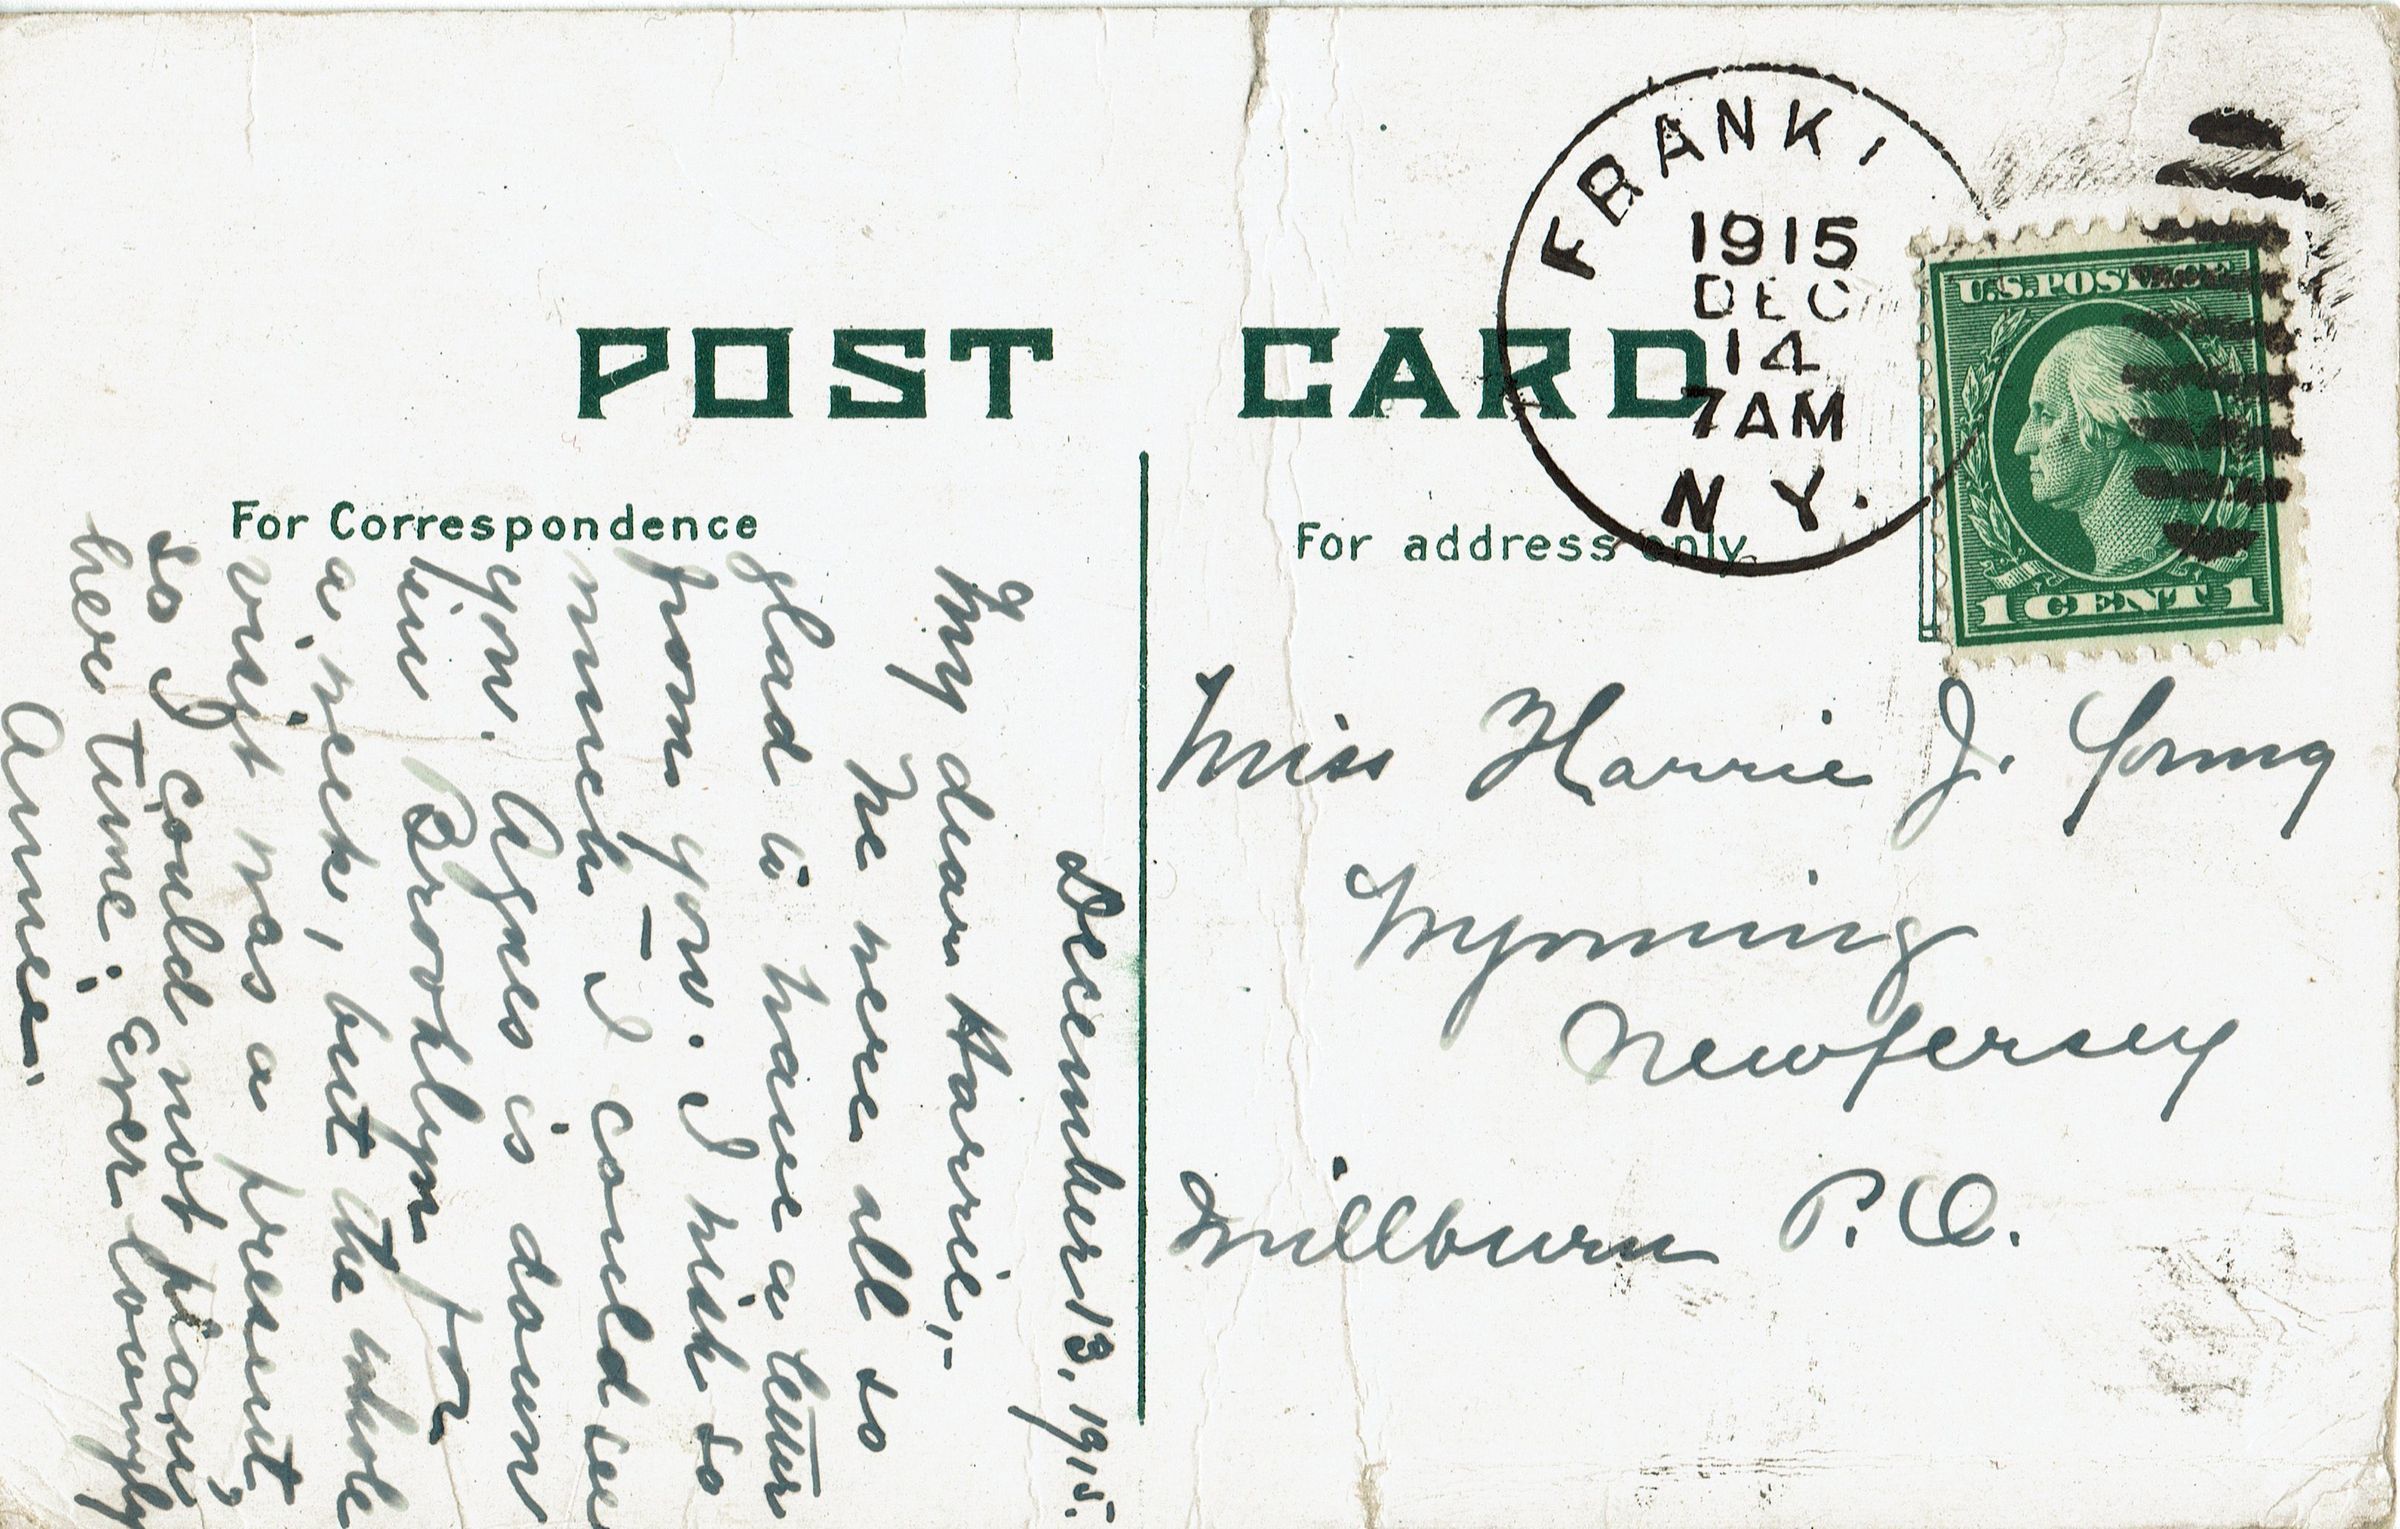 POST CARD
For Correspondence
For address only.
FRANK
1915
DEC
14
7AM
N Y.
U.S.POSTAGE
1 CENT 1
December 13, 1915.
My dear Harrie,-
We were all so
glad to have a letter
from you. I wish so
much - I could see
you. Agnes is down
in Brooklyn for
a week, but the whole
visit was a present,
so I could not plan
her time. Ever lovingly
Annie.
Miss Harrie J. Young
Wyoming
New Jersey
Millburn P.O.